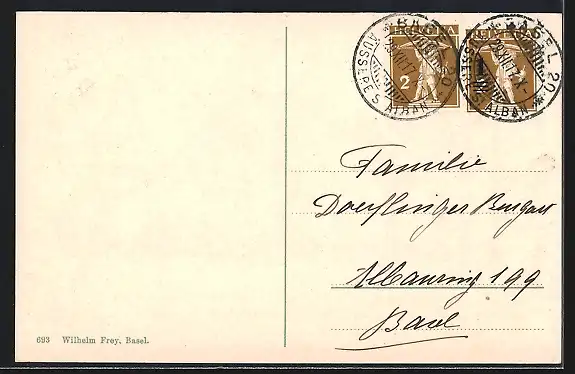 HELVETIA HELVETIA
2
BASEL 20
AUSSERES ST. ALBAN
BASEL 20
AUSSERES ST. ALBAN
Familie
Doerflinger
Albanring 199
Basel
693 Wilhelm Frey, Basel.